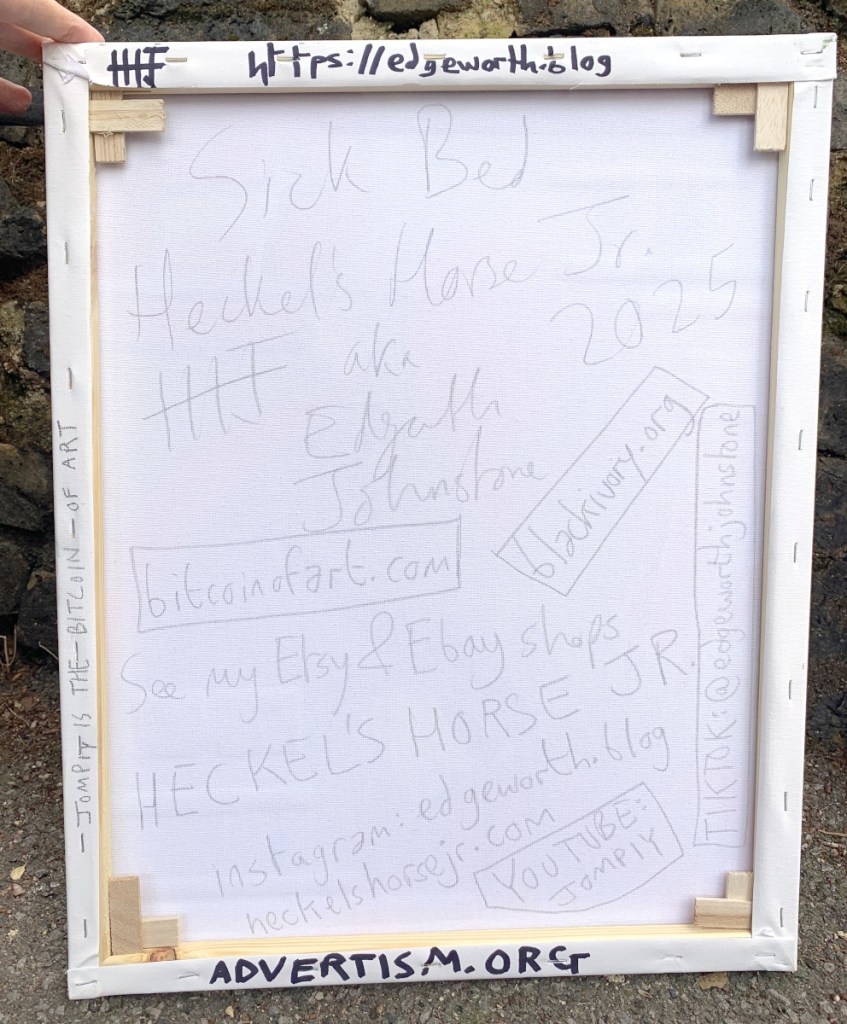 HHJ https://edgeworth.blog
Sick Bed
Heckel's Horse Jr.
2025
HHJ aka
Edgeworth
Johnstone
blackivory.org
TIKTOK:@edgeworthjohnstone
bitcoinofart.com
See my Etsy & Ebay shops
HECKEL'S HORSE JR.
instagram: edgeworth.blog
heckelshorsejr.com
YOUTUBE:
JOMPIY
- JOMPIY IS THE - BITCOIN - OF ART
ADVERTISM.ORG